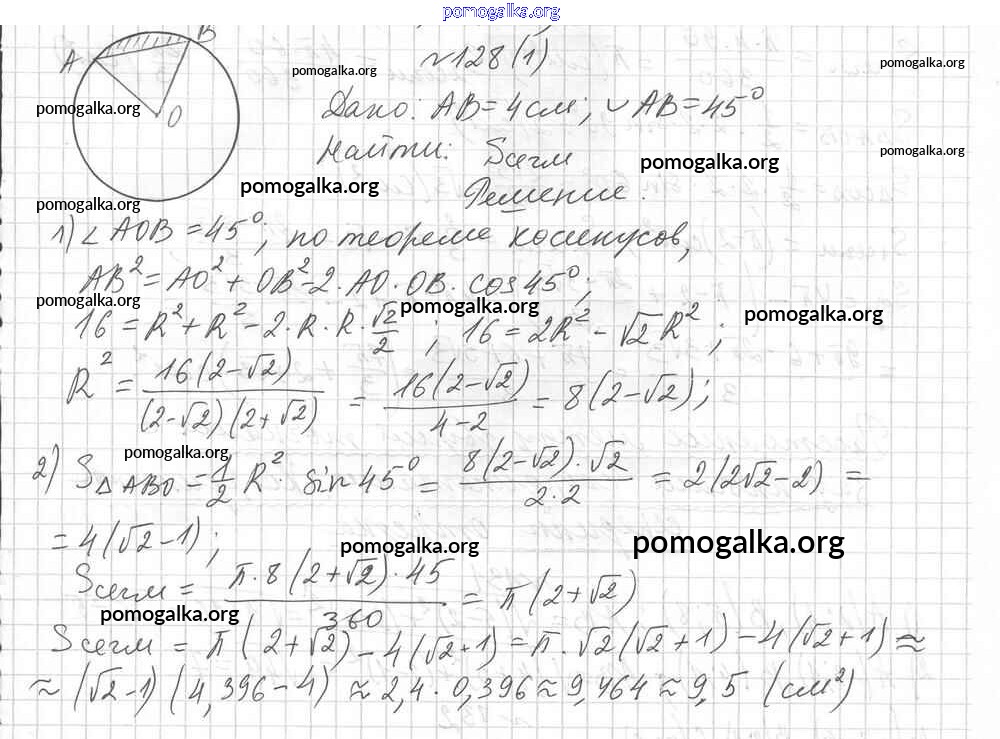 pomogalka.org
A B O
№128(1)
pomogalka.org
pomogalka.org
pomogalka.org
Дано: AB = 4 см; ◡ AB = 45°
Найти: Sсегм
pomogalka.org
pomogalka.org
pomogalka.org
pomogalka.org
Решение.
1) ∠AOB = 45°; по теореме косинусов,
AB² = AO² + OB² - 2·AO·OB·cos45°;
pomogalka.org
pomogalka.org
pomogalka.org
16 = R² + R² - 2·R·R·√2/2; 16 = 2R² - √2 R²;
R² = 16(2-√2)/(2-√2)(2+√2) = 16(2-√2)/4-2 = 8(2-√2);
pomogalka.org
2) S△ABO = 1/2 R²·sin45° = 8(2-√2)·√2/2·2 = 2(2√2-2) =
= 4(√2-1);
pomogalka.org
pomogalka.org
Sсегм = π·8(2+√2)·45/360 = π(2+√2)
pomogalka.org
Sсегм = π(2+√2) - 4(√2+1) = π·√2(√2+1) - 4(√2+1) ≈
≈ (√2-1)(4,396-4) ≈ 2,4·0,396 ≈ 9,464 ≈ 9,5 (см²)